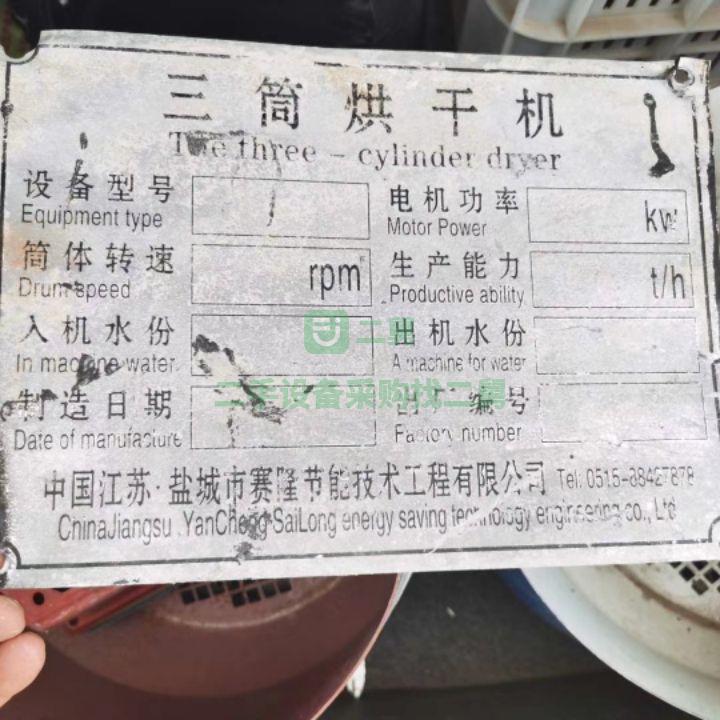 三筒烘干机
The three - cylinder dryer
设备型号 电机功率 kw
Equipment type Motor Power
筒体转速 rpm 生产能力 t/h
Drum speed Productive ability
入机水份 出机水份
In machine water A machine for water
二男
二手设备采购找二男
制造日期 出厂编号
Date of manufacture Factory number
中国江苏·盐城市赛隆节能技术工程有限公司 Tel: 0515-88427878
ChinaJiangsu .YanCheng SaiLong energy saving technology engineering co., Ltd